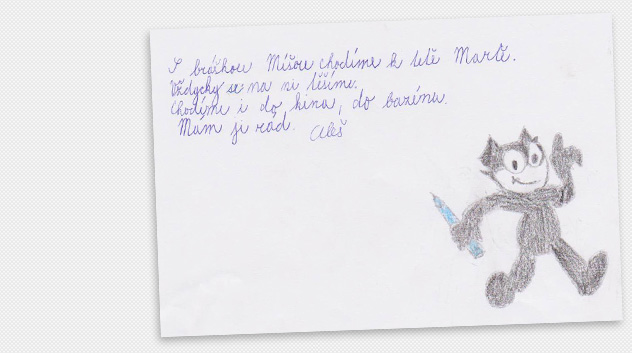 S bráškou Míšou chodíme k tetě Martě.
Vždycky se na ni těšíme.
Chodíme i do kina, do bazénu.
Mám ji rád. Aleš